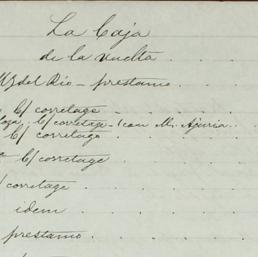 La Caja
de la vuelta
M. del Rio - prestamo
C/ corretage
C/ corretage - (con M. Ajuria
C/ corretage
C/ corretage
C/ corretage
idem
prestamo